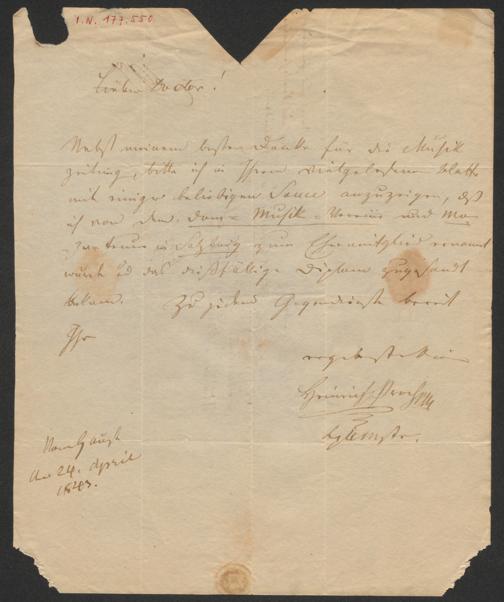 I.N. 177.550
Lieber Doctor!
Nebst meinem besten Danke für die Musik
zeitung, bitte ich in Ihrem vielgelesenen Blatte
mit einiger beliebigen Sauce anzuzeigen, daß
ich von dem Dom-Musik-Verein und Mo-
zarteum in Salzburg zum Ehrenmitglied ernannt
wurde und das dießfällige Diplom zugesandt
bekam. Zu jedem Gegendienste bereit
Ihr
ergebenster
Heinrich Proch
Kplmstr.
Vom Hause
den 24. April
1843.